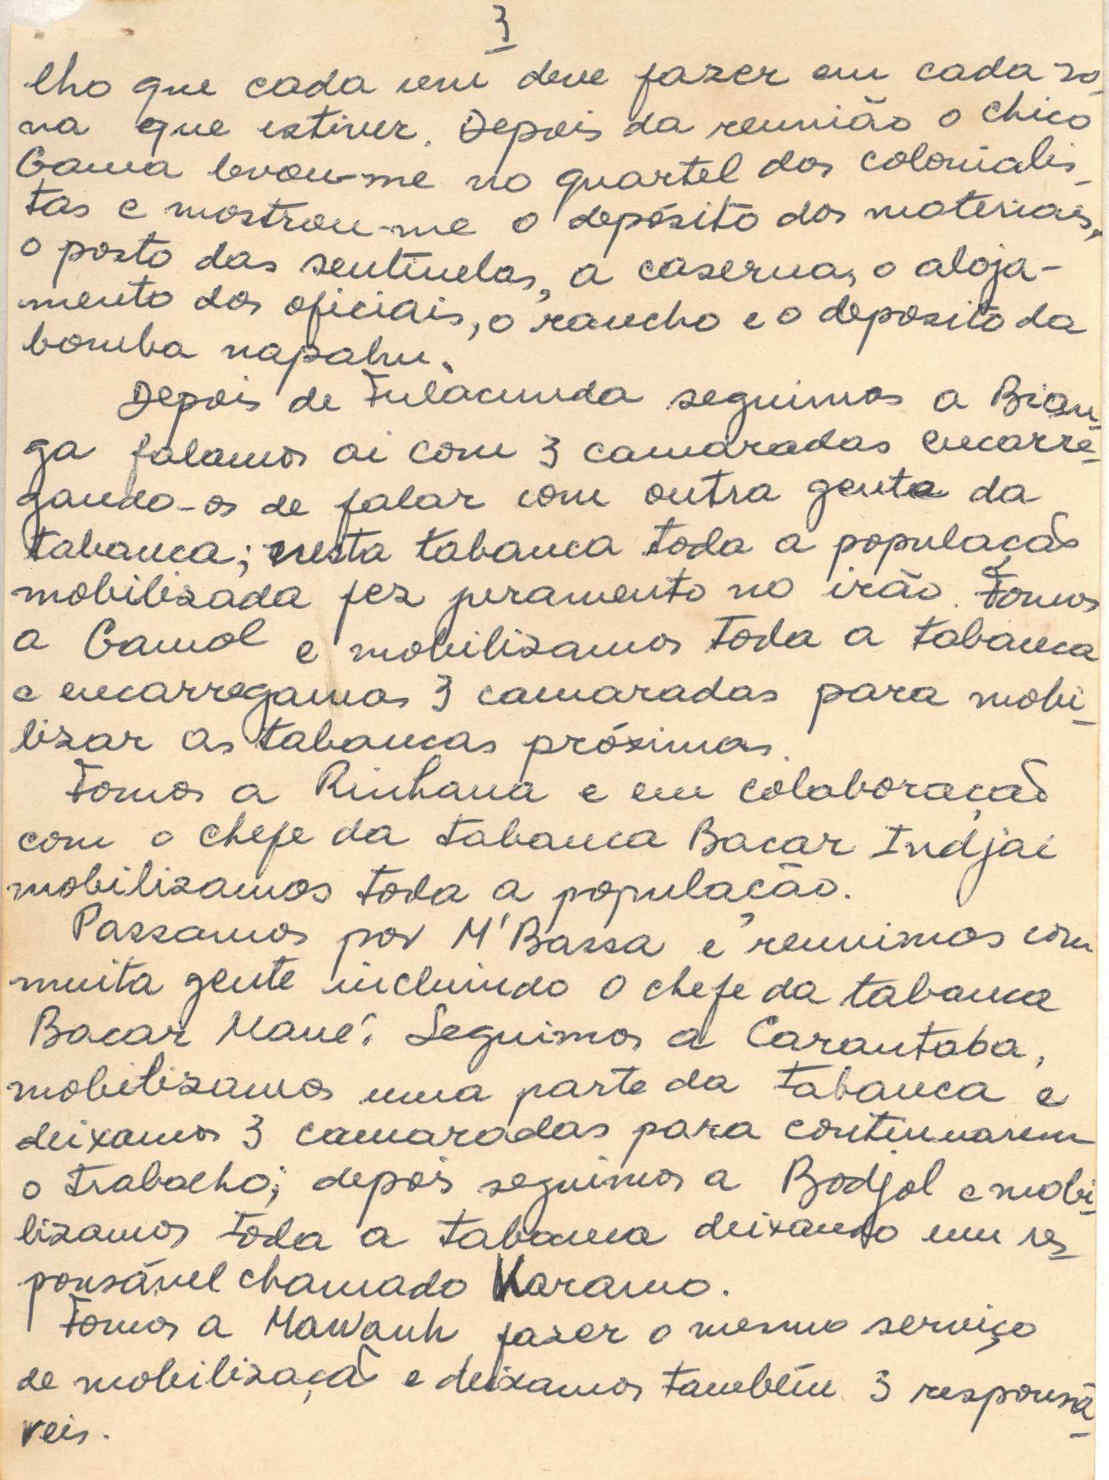 3
lho que cada um deve fazer em cada zo-
na que estiver. Depois da reunião o chico
Gama levou-me no quartel dos colonialis-
tas e mostrou-me o depósito dos materiais,
o posto das sentinelas, a caserna, o aloja-
mento dos oficiais, o rancho e o deposito da
bomba napalm.
Depois de Fulacunda seguimos a Bian-
ga falamos ai com 3 camaradas encarre-
gando-os de falar com outra gente da
tabanca; nesta tabanca toda a população
mobilizada fez juramento no irão. Fomos
a Gamol e mobilizamos toda a tabanca
e encarregamos 3 camaradas para mobi-
lizar as tabancas próximas.
Fomos a Rinhana e em colaboração
com o chefe da tabanca Bacar Indjai
mobilizamos toda a população.
Passamos por M'Bassa e reunimos com
muita gente incluindo o chefe da tabanca
Bacar Mané. Seguimos a Carantaba,
mobilizamos uma parte da tabanca e
deixamos 3 camaradas para continuarem
o trabalho; depois seguimos a Bodjol e mobi-
lizamos toda a tabanca deixando um res-
ponsável chamado Karamo.
Fomos a Mawanh fazer o mesmo serviço
de mobilização e deixamos também 3 responsá-
veis.